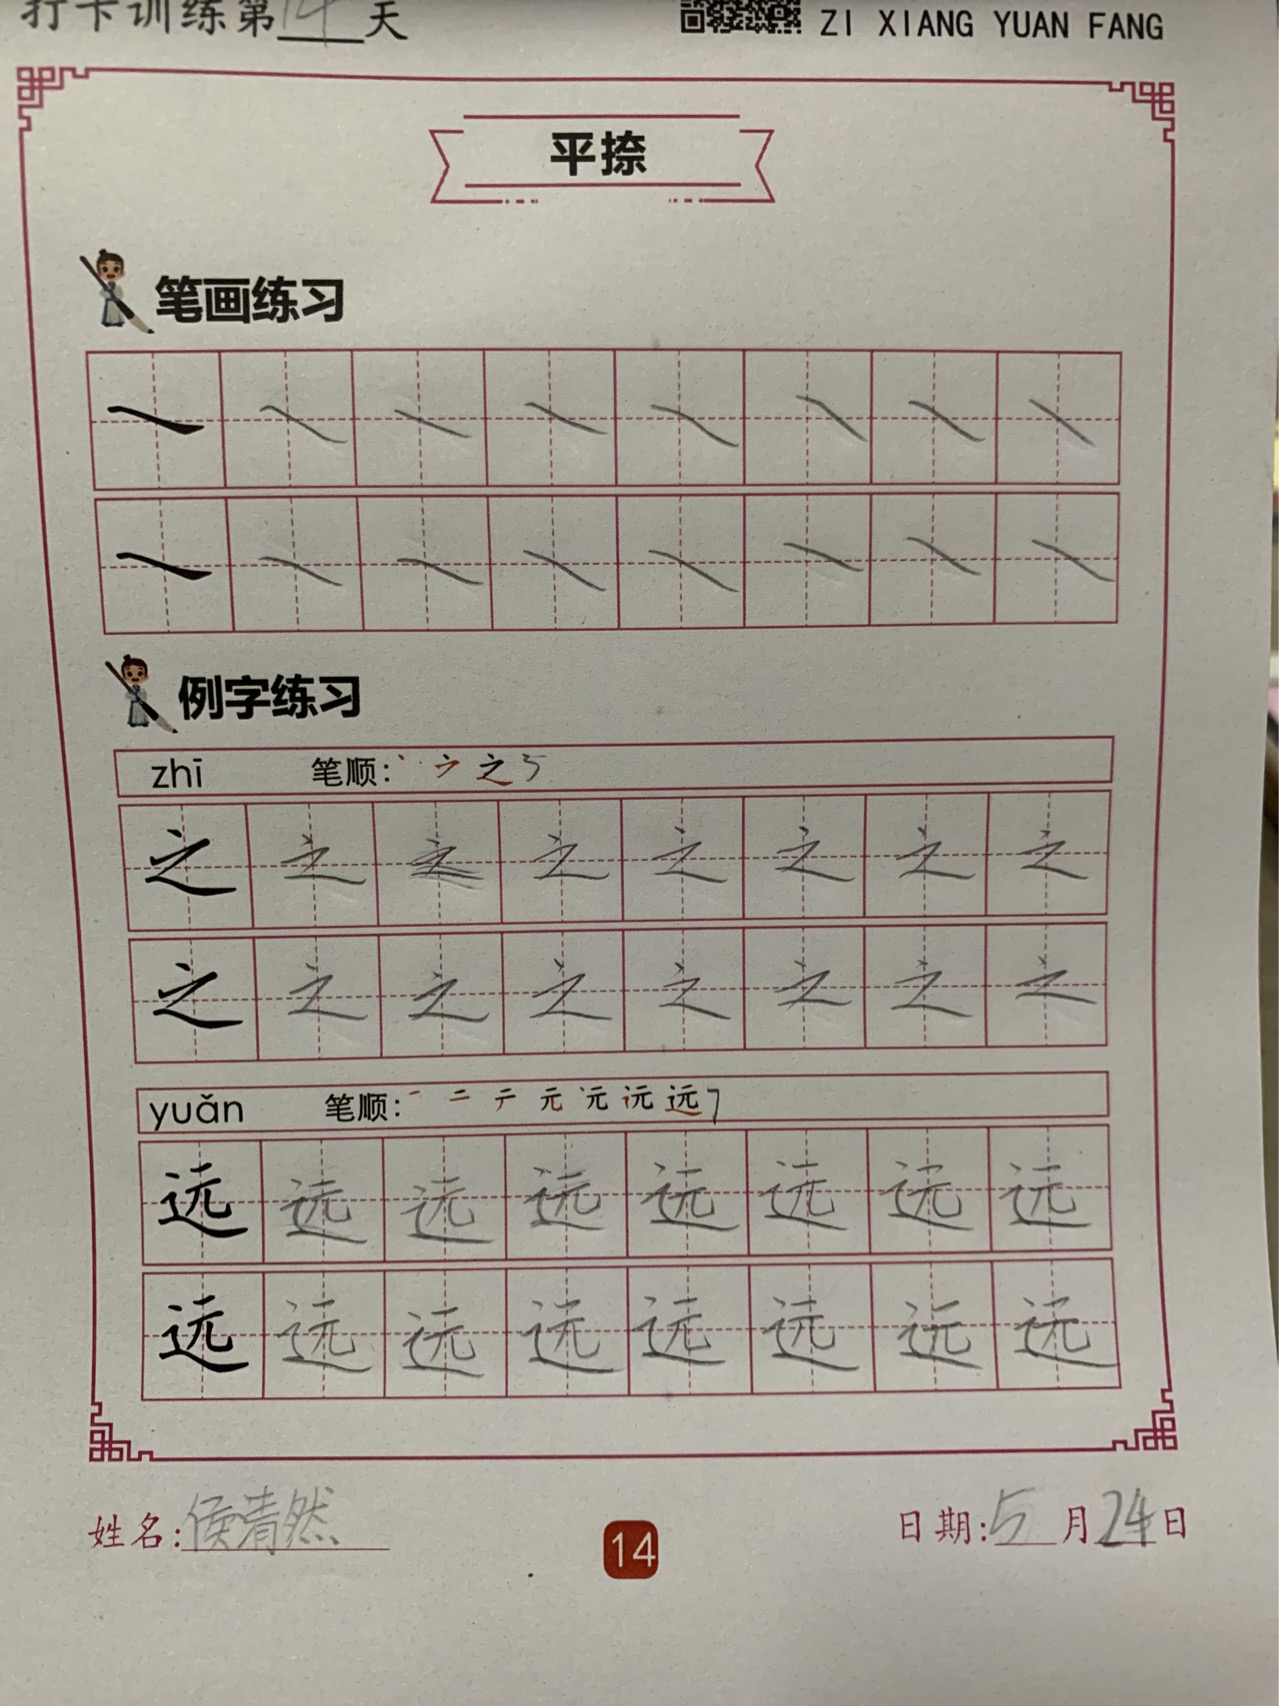 打卡训练第14天
ZI XIANG YUAN FANG
平捺
笔画练习
例字练习
zhī 笔顺:丶 之
之 之 之 之 之 之 之 之
之 之 之 之 之 之 之 之
yuǎn 笔顺:一 二 テ 元 远
远 远 远 远 远 远 远 远
远 远 远 远 远 远 远 远
姓名:侯清然
14
日期:5月24日